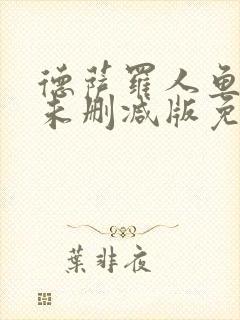 德萨罗人鱼
未删减版免
葉非夜